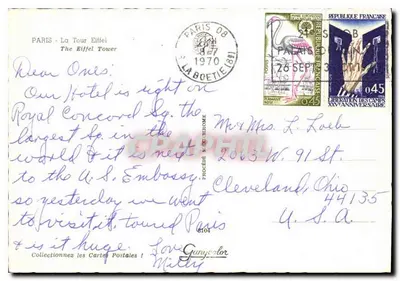 PARIS - La Tour Eiffel
The Eiffel Tower
Dear Ones.
Our Hotel is right on
Royal Concord Sq. the
largest Sq. in the
world & it is next
to the U.S. Embassy
so yesterday we went
to visit it, toured Paris
& is it huge. Love
Miley
Collectionnez les Cartes Postales !
PARIS 08
1970
LA BOETIE (8e)
PALAIS
26 SEPT
REPUBLIQUE FRANCAISE
LIBERATION DES CAMPS
XXV ANNIVERSAIRE
0,45
0,45
Mr & Mrs. L. Loeb
2063 W. 91 St.
Cleveland, Ohio
44135
U. S. A
6104
Ganycolor
CPAPHIL